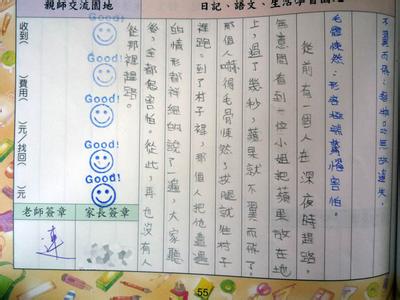 日記、語文、生活學習園地
不翼而飛：無故遺失。
毛骨悚然：形容極端驚惶害怕。
從前有一個人在深夜時趕路。
無意間看到一位小姐把蘋果放在地
上，過了幾秒，蘋果就不翼而飛了。
那個人嚇得毛骨悚然，拔腿就往村子
裡跑。到了村子裡，那個人把他遭遇
的情形都詳細的說了一遍，大家聽
後，全都很害怕。從此，再也沒有人
從那裡趕路。
親師交流園地
Good!
Good!
Good!
Good!
收到( )費用( )元/找回( )元
家長簽章
老師簽章
連
55